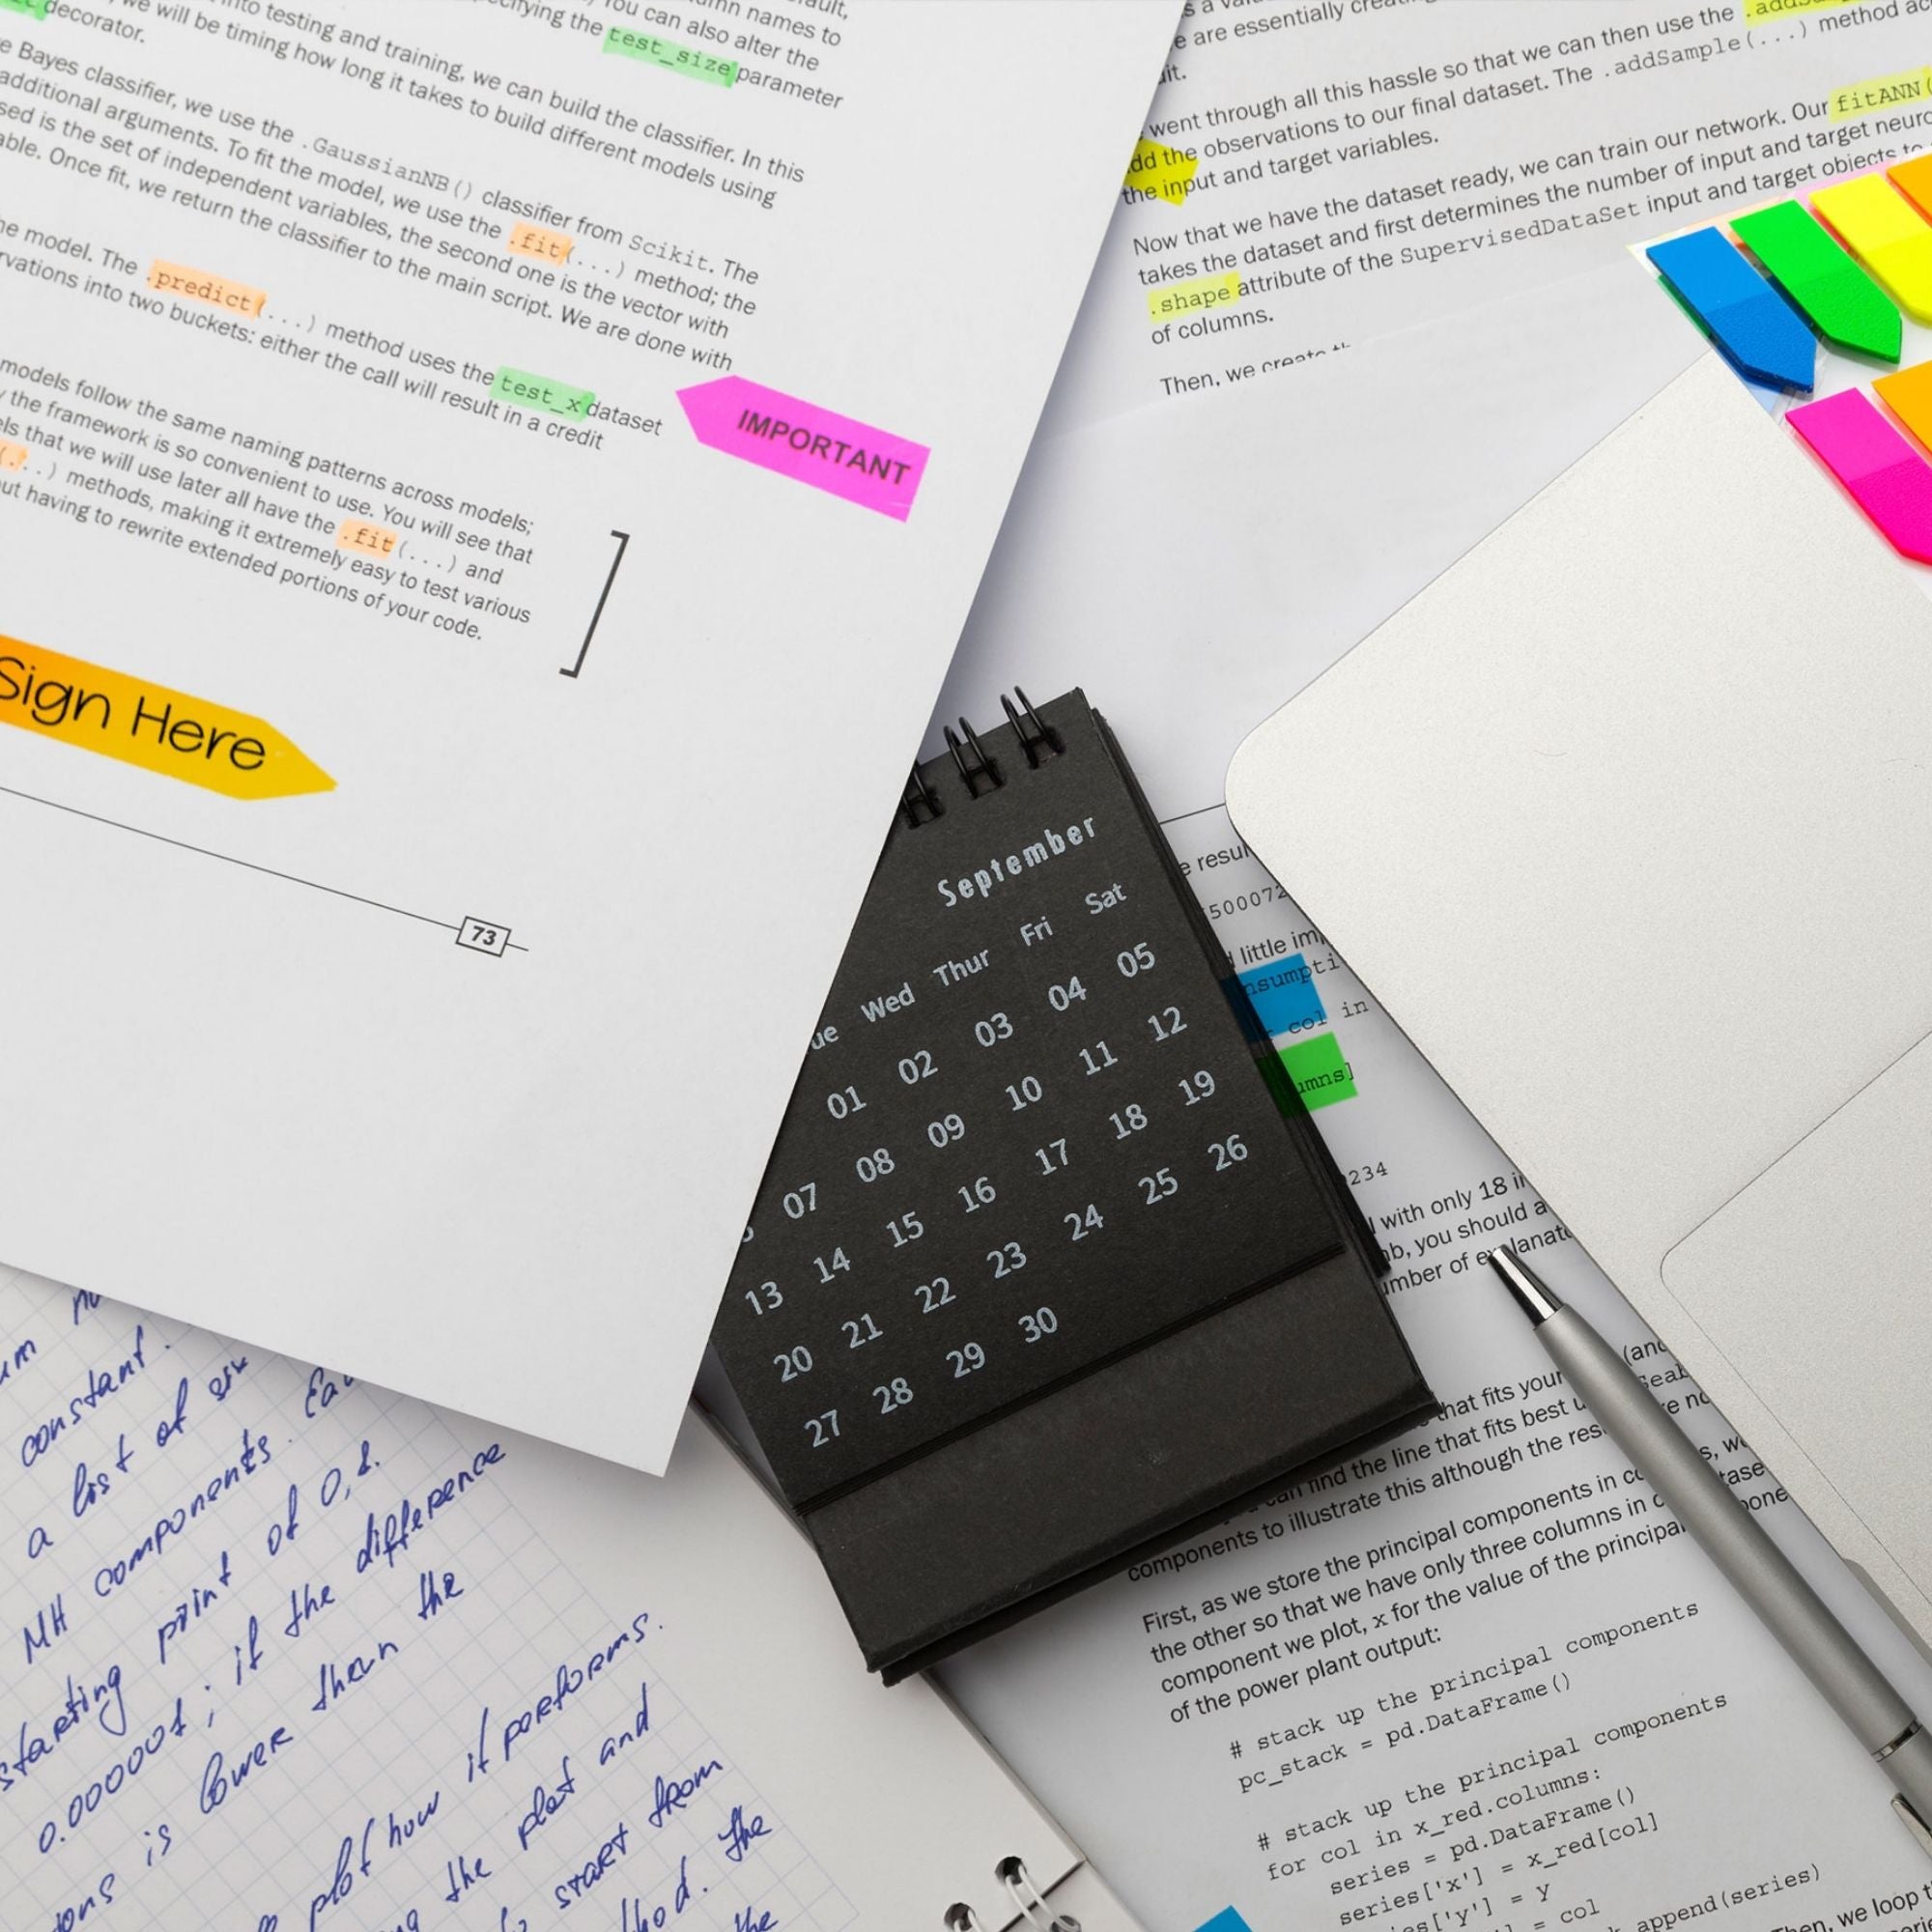 into testing and training, we can build the classifier. In this
we will be timing how long it takes to build different models using
decorator.
column names to
You can also alter the
specifying the test_size parameter
Bayes classifier, we use the .GaussianNB() classifier from Scikit. The
additional arguments. To fit the model, we use the .fit(...) method; the
is the set of independent variables, the second one is the vector with
Once fit, we return the classifier to the main script. We are done with
model. The .predict(...) method uses the test_x dataset
into two buckets: either the call will result in a credit
models follow the same naming patterns across models;
the framework is so convenient to use. You will see that
that we will use later all have the .fit(...) and
(...) methods, making it extremely easy to test various
having to rewrite extended portions of your code.
IMPORTANT
Sign Here
73
are essentially
went through all this hassle so that we can then use the
the observations to our final dataset. The .addSample(...) method
the input and target variables.
Now that we have the dataset ready, we can train our network. Our fitANN(
takes the dataset and first determines the number of input and target
.shape attribute of the SupervisedDataSet input and target objects to
of columns.
Then, we create
September
Wed Thur Fri Sat
01 02 03 04 05
07 08 09 10 11 12
13 14 15 16 17 18 19
20 21 22 23 24 25 26
27 28 29 30
little
col in
with only 18
you should
of
that fits your (and
find the line that fits best
components to illustrate this although the
First, as we store the principal components in
the other so that we have only three columns in
component we plot, x for the value of the principal
of the power plant output:
# stack up the principal components
pc_stack = pd.DataFrame()
# stack up the principal components
for col in x_red.columns:
series = pd.DataFrame()
series['x'] = x_red[col]
['y'] = y
= col
append(series)
Then, we loop
constant.
a list of
MH components.
starting point of 0,1.
0.0000001; if the difference
is lower than the
plot how it performs.
the plot and
start from
the
the